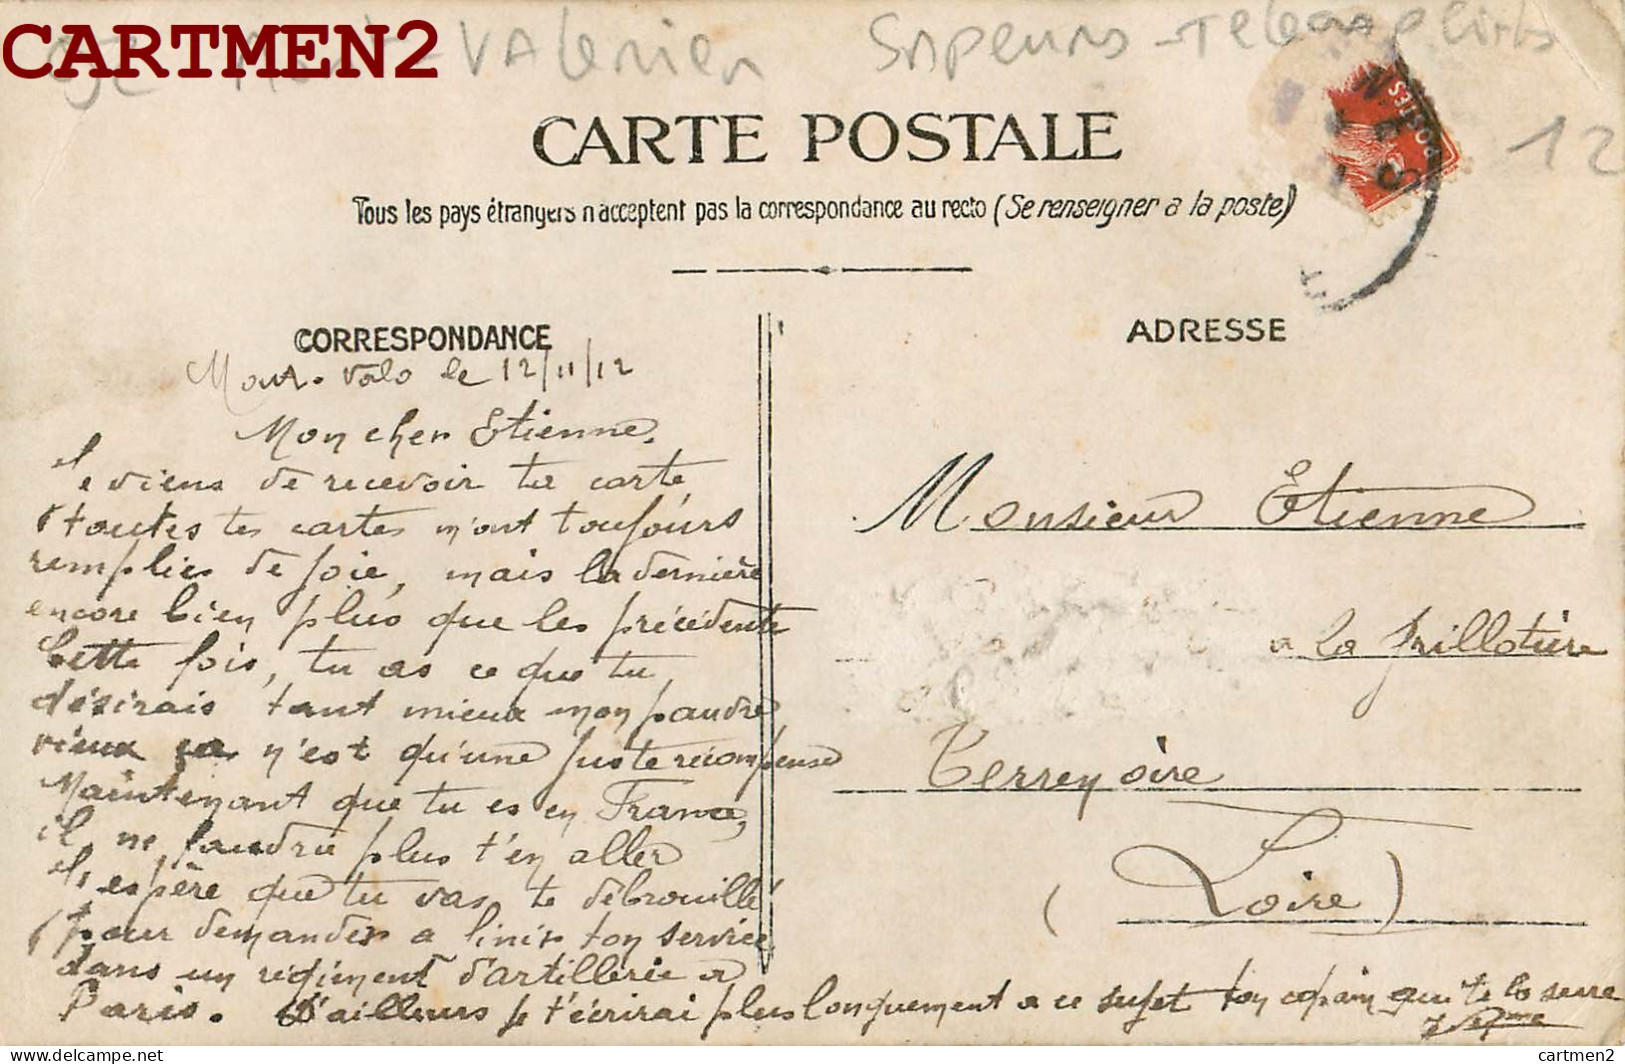 CARTMEN2
92 Mont-Valerien Sapeurs-Telegraphistes
12
CARTE POSTALE
POSTES
Tous les pays étrangers n'acceptent pas la correspondance au recto (Se renseigner a la poste)
CORRESPONDANCE
ADRESSE
Mont-Valo le 12/11/12
Mon cher Etienne.
Je viens de recevoir ta carte
toutes tes cartes m'ont toujours
remplies de joie, mais la dernière
encore bien plus que les précédente
Cette fois, tu as ce que tu
désirais tant mieux mon paudre
vieux n'est qu'une juste récompense
Maintenant que tu es en France,
il ne faudra plus t'en aller
J'espère que tu vas te débrouillé
pour demander a finir ton service
dans un régiment d'artillerie a
Paris. D'ailleurs je t'écrirai plus longuement a ce sujet ton copain qui te la serre
Monsieur Etienne
a la
Terrenoire
(Loire)
cartmen2